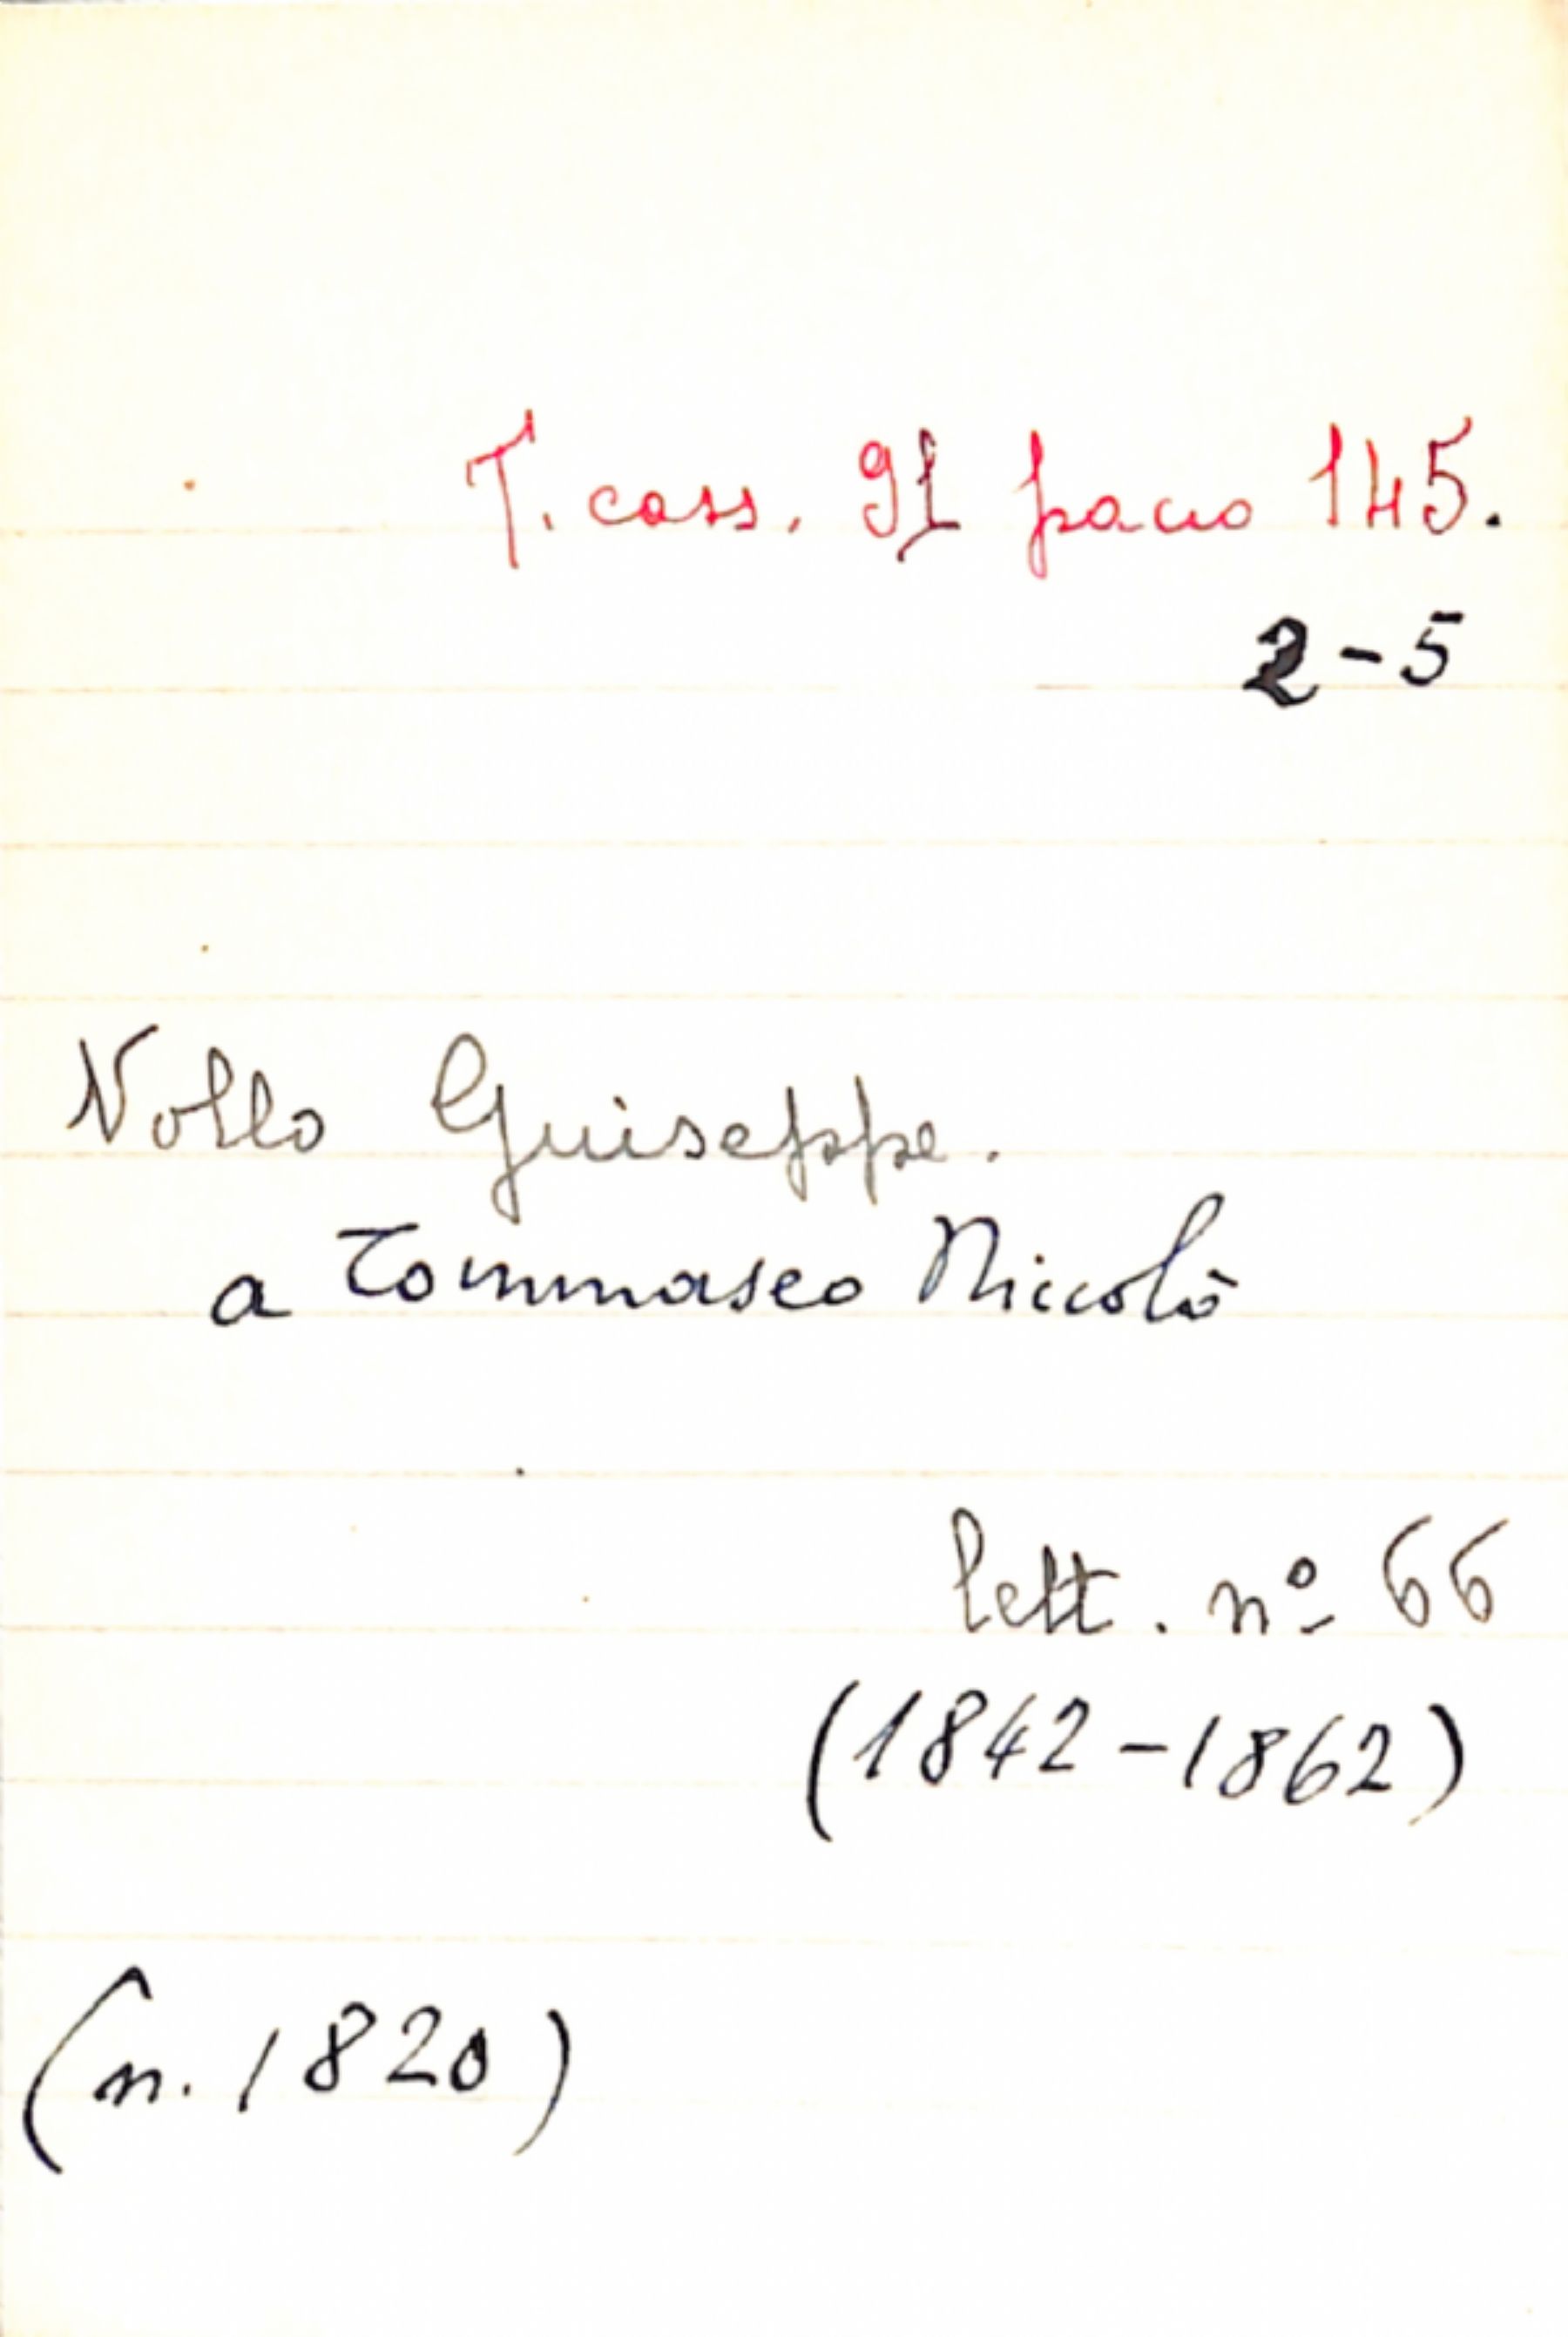 T. cass. 91 pacco 145.
2-5
Vollo Giuseppe.
a Tommaseo Niccolò
lett. nº 66
(1842-1862)
(n. 1820)